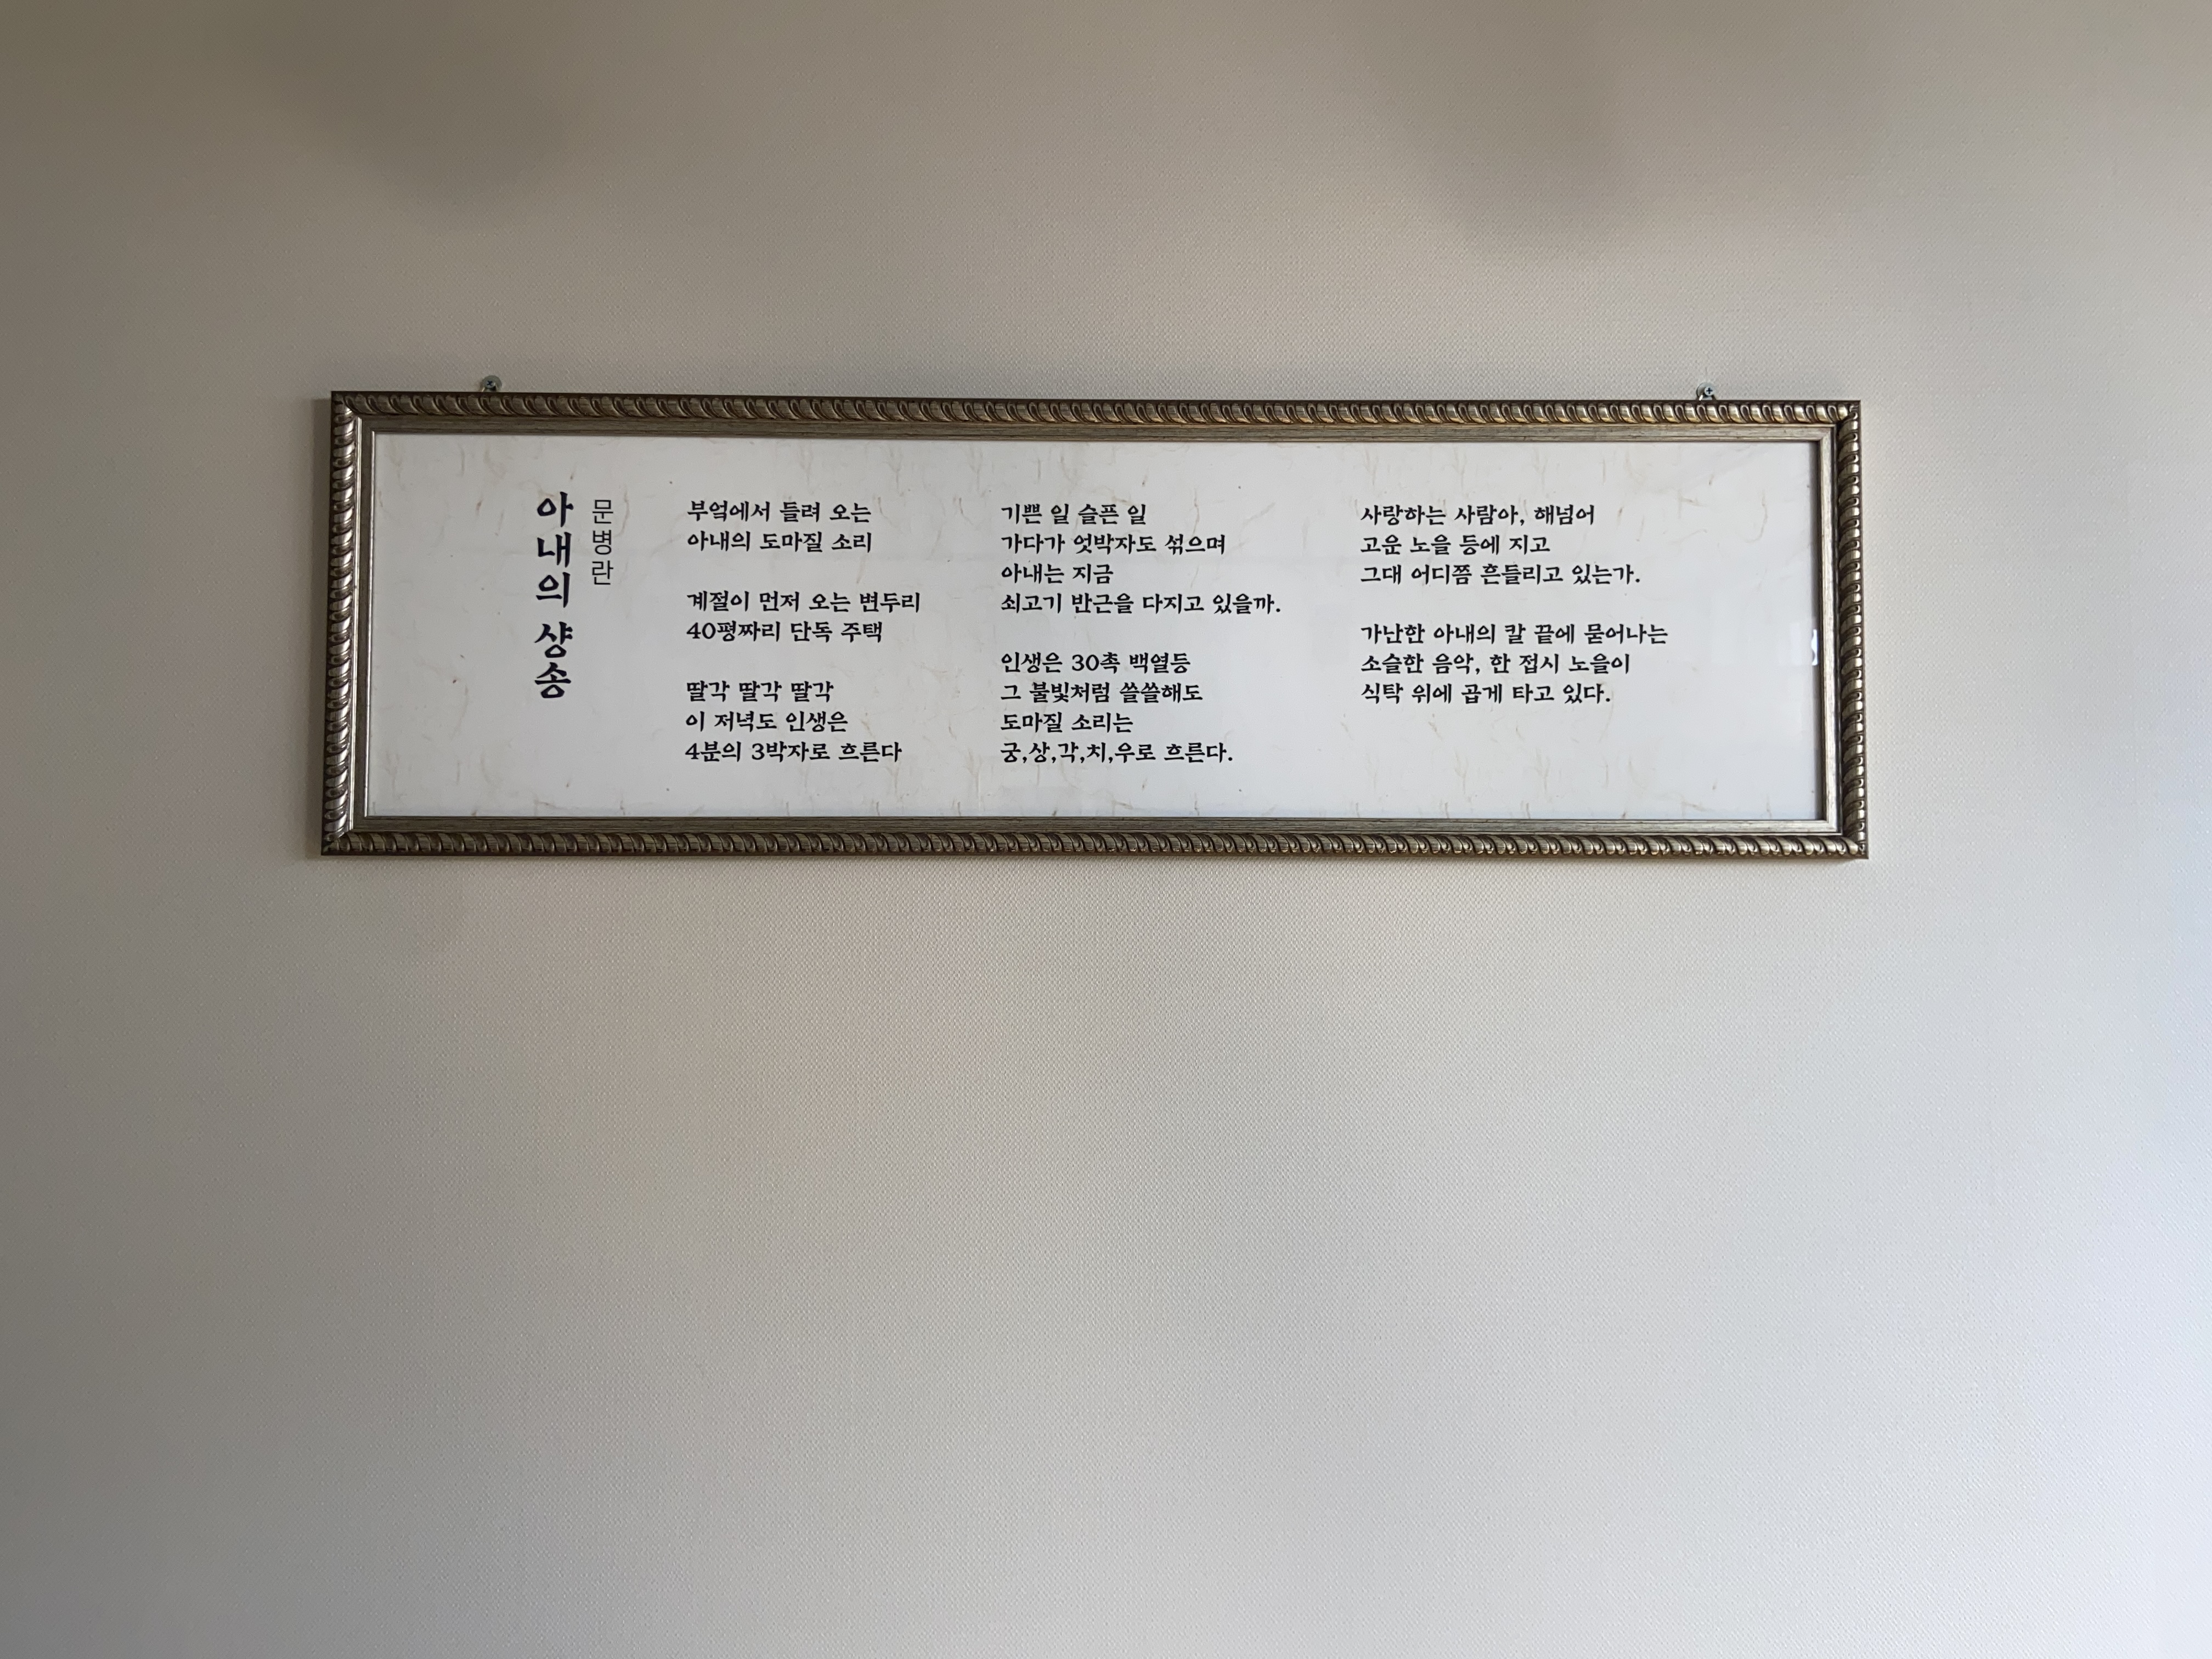 아내의 샹송
문병란
부엌에서 들려 오는
아내의 도마질 소리
계절이 먼저 오는 변두리
40평짜리 단독 주택
딸각 딸각 딸각
이 저녁도 인생은
4분의 3박자로 흐른다
기쁜 일 슬픈 일
가다가 엇박자도 섞으며
아내는 지금
쇠고기 반근을 다지고 있을까.
인생은 30촉 백열등
그 불빛처럼 쓸쓸해도
도마질 소리는
궁,상,각,치,우로 흐른다.
사랑하는 사람아, 해넘어
고운 노을 등에 지고
그대 어디쯤 흔들리고 있는가.
가난한 아내의 칼 끝에 묻어나는
소슬한 음악, 한 접시 노을이
식탁 위에 곱게 타고 있다.